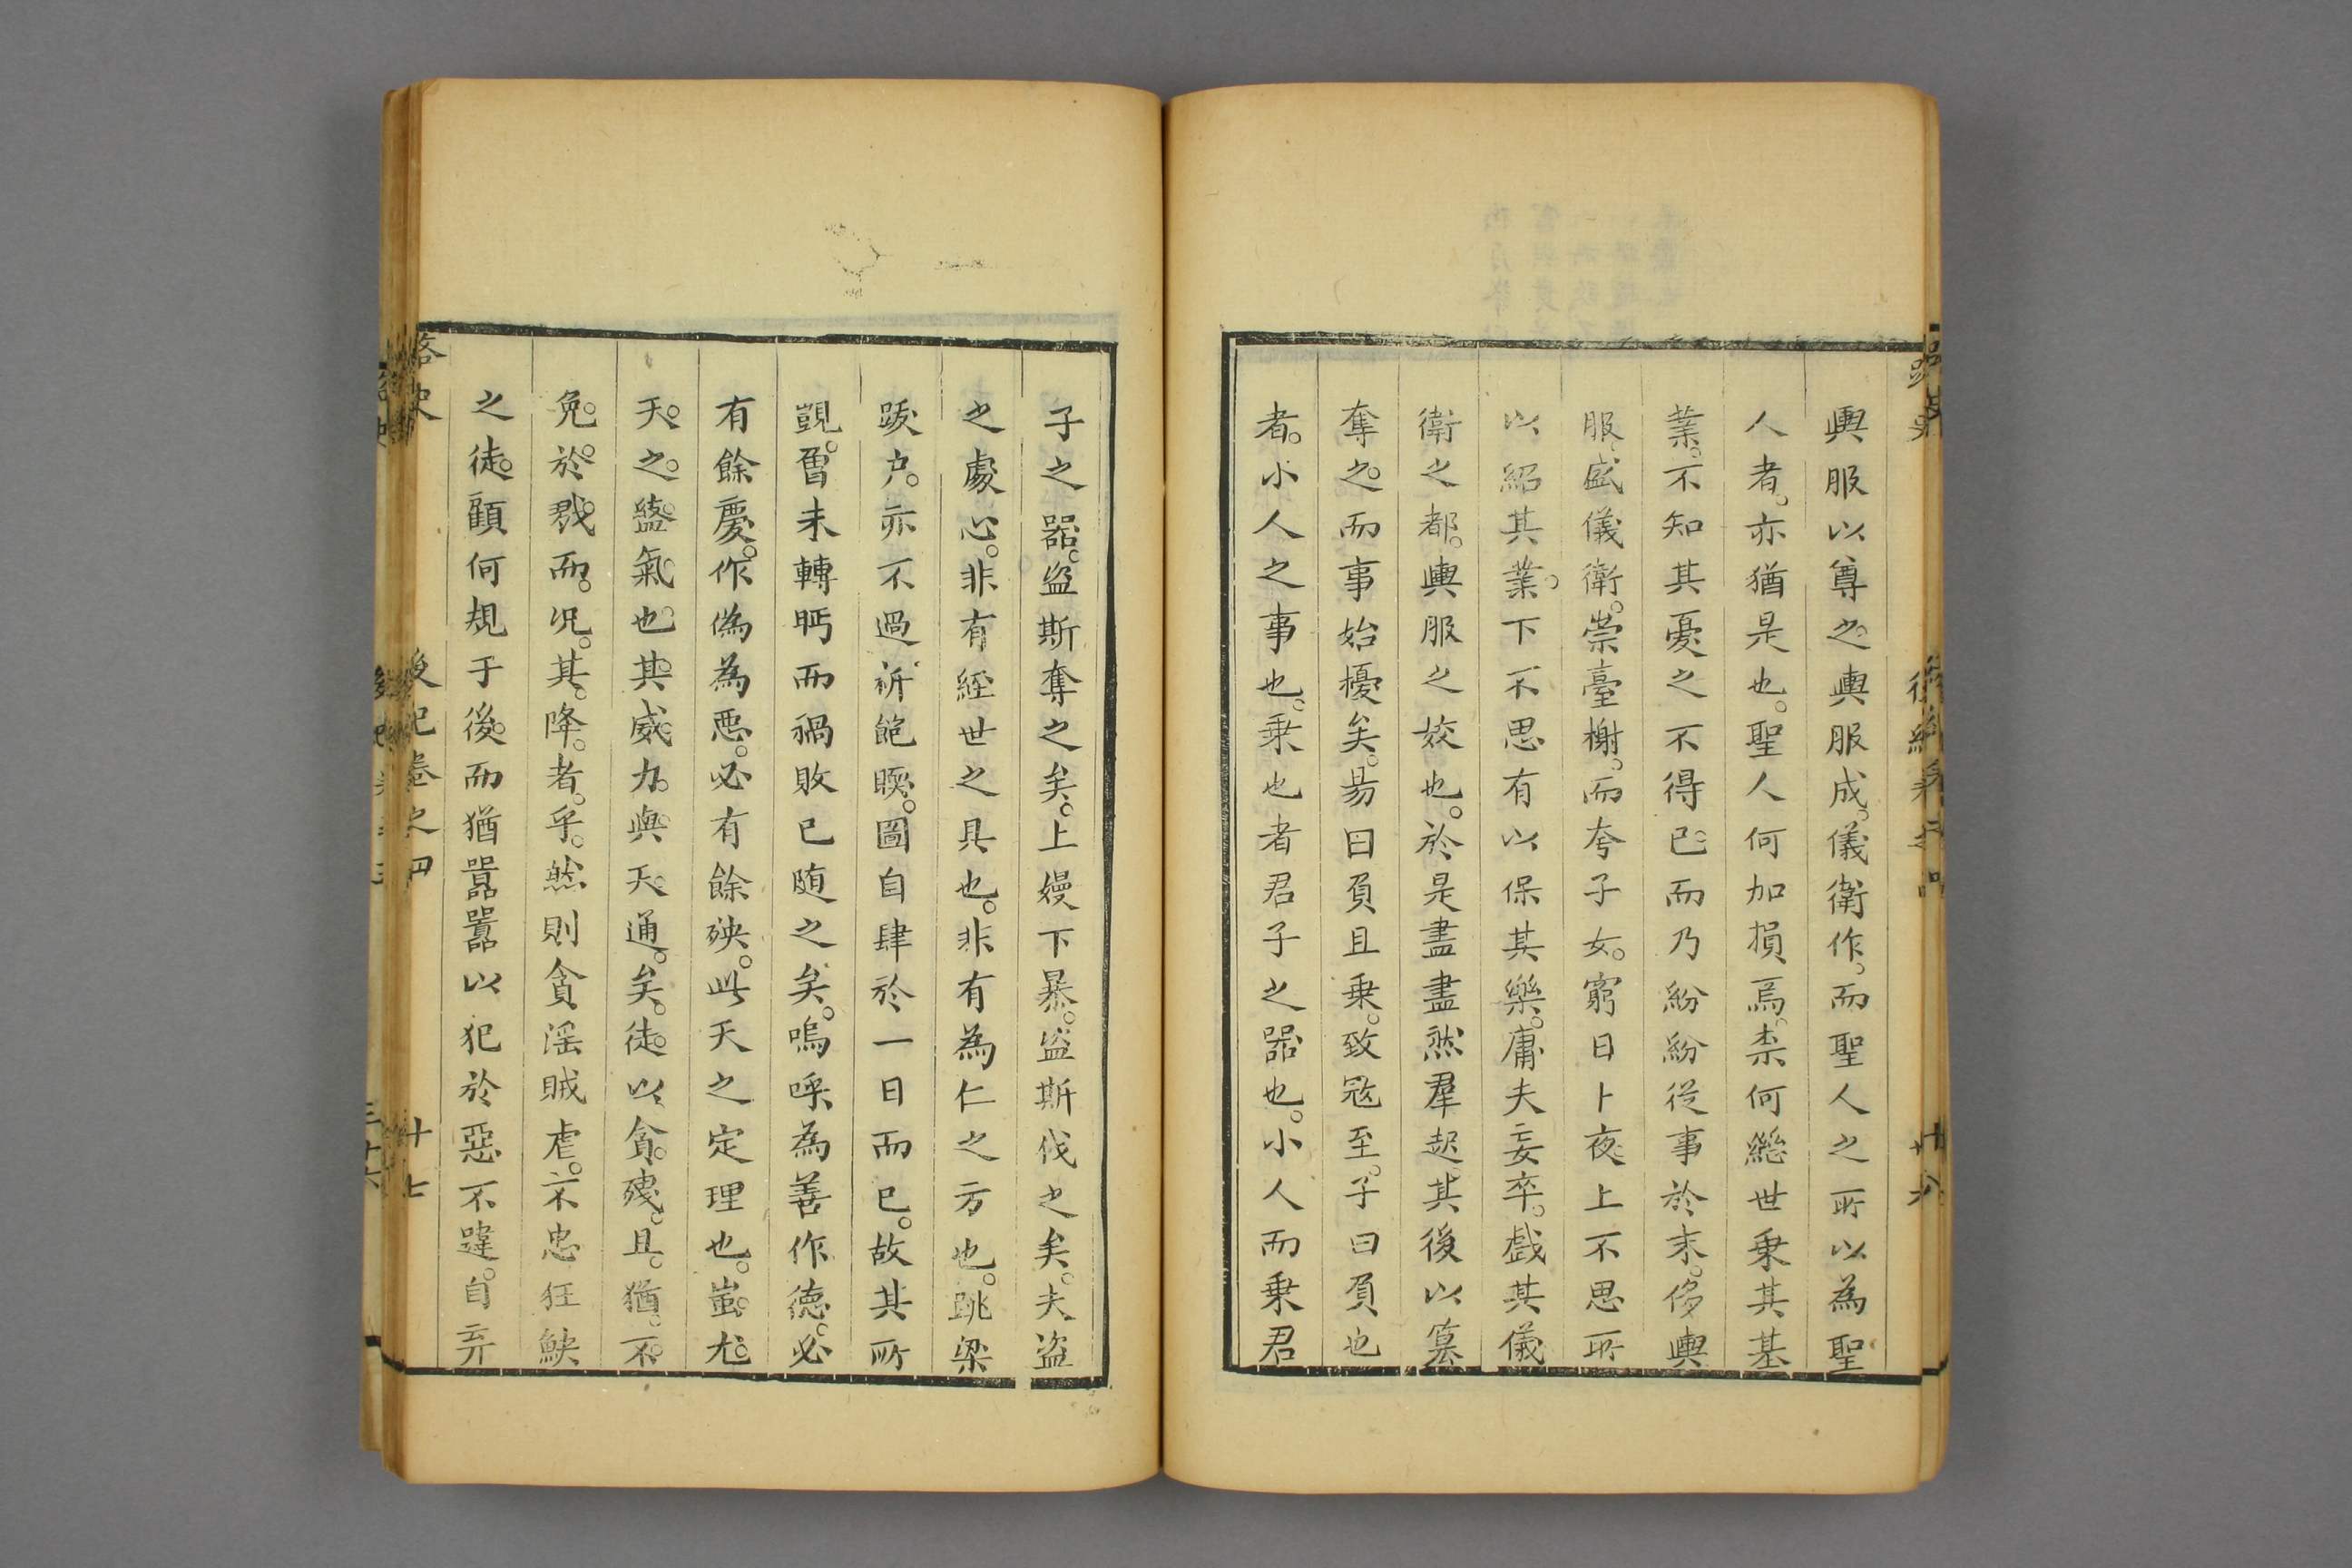 輿服以尊之輿服成儀衛作而聖人之所以為聖
人者亦猶是也聖人何加損焉柰何繼世乗其基
業不知其憂之不得已而乃紛紛從事於末侈輿
服盛儀衛崇臺榭而夸子女窮日卜夜上不思所
以紹其業下不思有以保其樂庸夫妄卒戲其儀
衛之都輿服之姣也於是盡盡然羣起其後以簒
奪之而事始擾矣易曰負且乗致冦至子曰負也
者小人之事也乗也者君子之器也小人而乗君
子之器盗斯奪之矣上嫚下暴盗斯伐之矣夫盗
之劇心非有經世之具也非有為仁之方也跳梁
跋户亦不過祈飽暖圖自肆於一日而已故其所
覬曾未轉眄而禍敗已随之矣嗚呼為善作徳必
有餘慶作偽為惡必有餘殃此天之定理也蚩尤
天之盭氣也其威力與天通矣徒以貪殘且猶不
免於戮而况其降者乎然則貪淫賊虐不忠狂鈌
之徒顧何規于後而猶囂囂以犯於惡不韙自弃
路史 後紀卷之四 十七